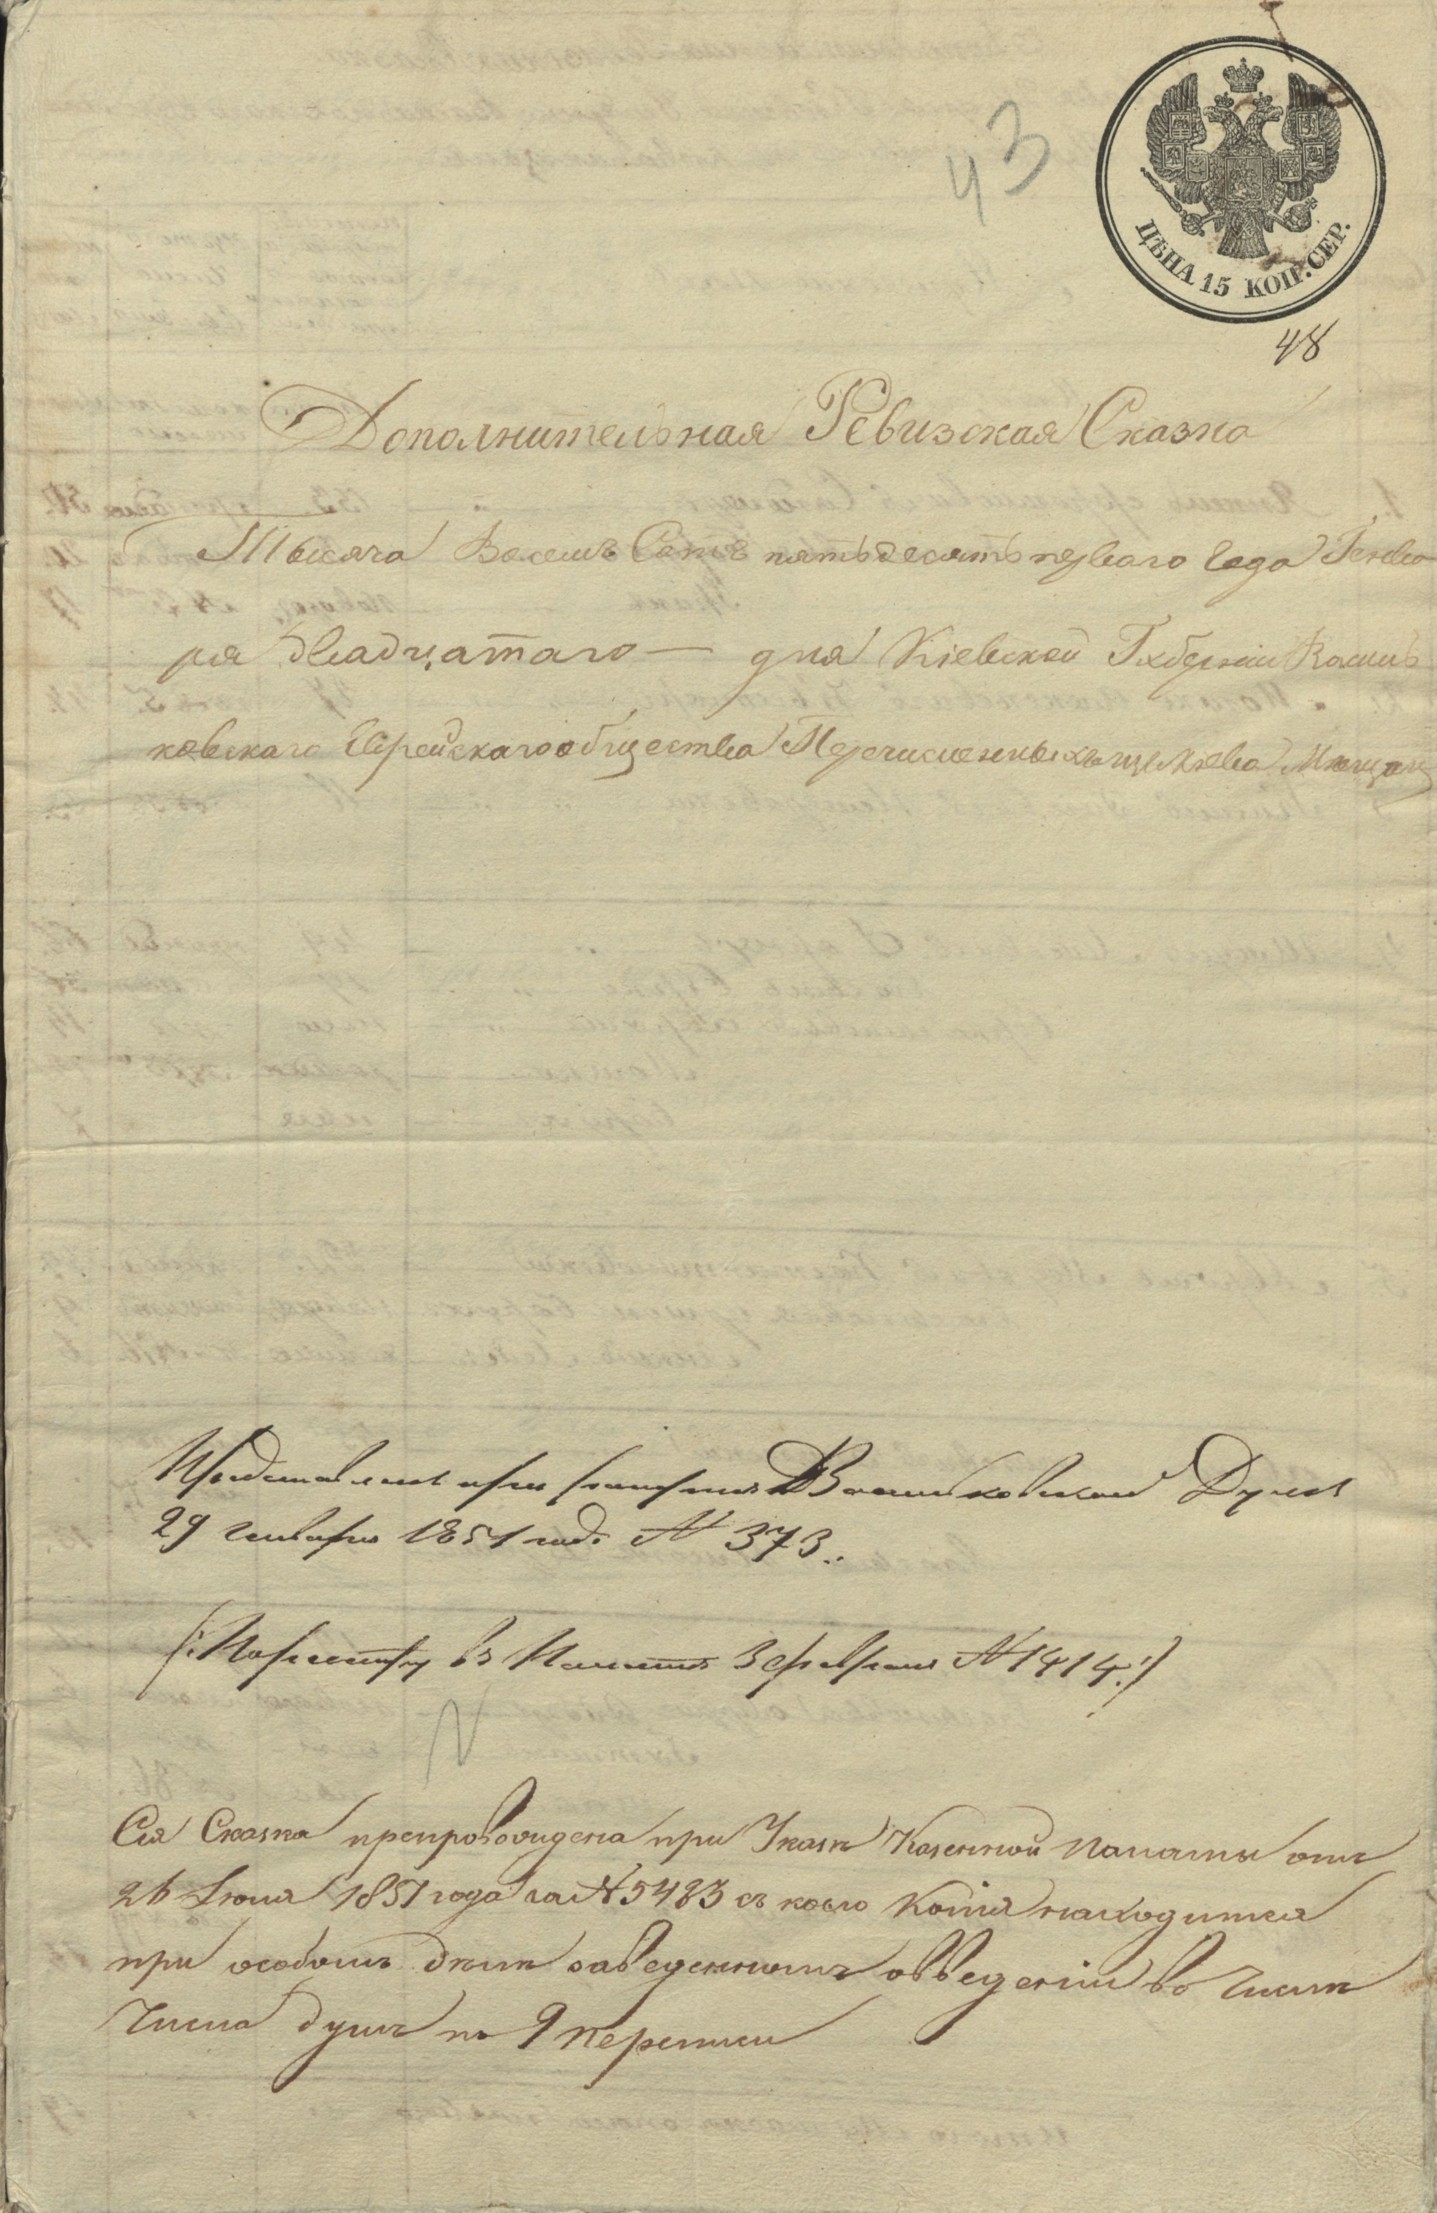 43
ЦѢНА 15 КОП. СЕР.
48
Дополнительная Ревизская Сказка
Тысяча Восемъ Сотъ пятьдесятъ перваго Года Генва
ря двадцатаго — дня Кіевской Губерніи Василь
ковскаго Еврейскаго общества Перечисленныхъ изъ Кіева Мещан
Представлена при рапорте Васильковской Думы
29 Генваря 1851 года № 373.
(: По реестру въ Палатѣ 3 февраля № 1414 :)
Сія Сказка препровождена при Указѣ Казенной Палаты отъ
26 Іюня 1851 года за № 5483 съ коего Копія находится
при особомъ дѣлѣ заведенномъ о введеніи во
Числа душъ по 9 переписи